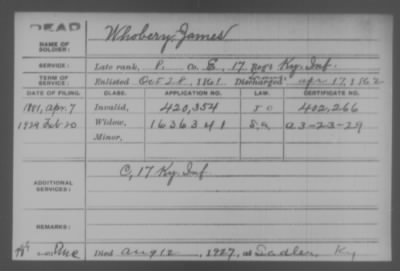 DEAD
NAME OF SOLDIER: Whobery, James
SERVICE: Late rank, P. Co. E, 17 Reg't Ky. Inf.
TERM OF SERVICE: Enlisted Oct 28, 1861. Discharged Apr 17, 1862
DATE OF FILING. CLASS. APPLICATION NO. LAW. CERTIFICATE NO.
1881, Apr. 7 Invalid, 420,354 402,266
1929 Feb 20 Widow, 1636341 S.A. A3-23-29
Minor,
ADDITIONAL SERVICES: C, 17 Ky. Inf
REMARKS:
Died Aug 12, 1927, at Sadler, Ky